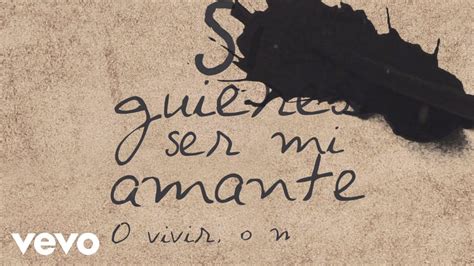 S
quieres
ser mi
amante
O vivir, o n
vevo